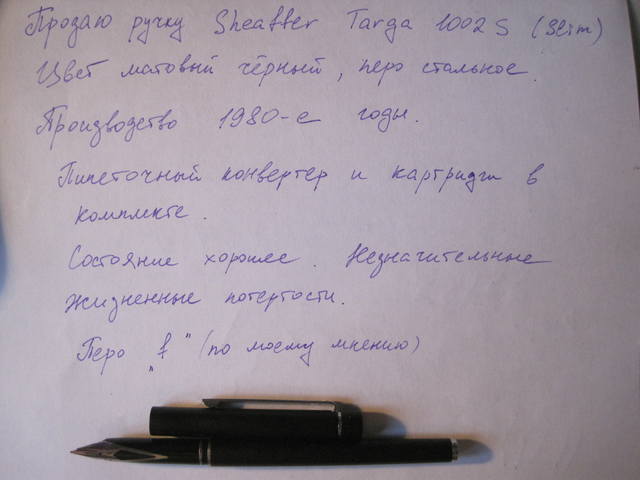 Продаю ручку Sheaffer Targa 1002 S (Slim)
Цвет матовый чёрный, перо стальное.
Производство 1980-е годы.
Пипеточный конвертер и картридги в
комплекте.
Состояние хорошее. Незначительные
жизненные потертости.
Перо „f" (по моему мнению)